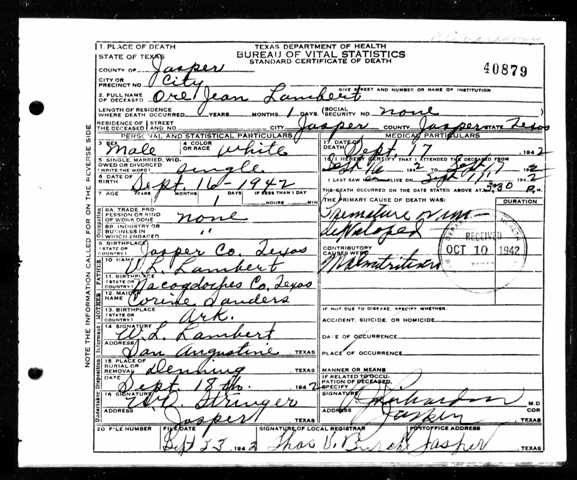 1. PLACE OF DEATH
STATE OF TEXAS
COUNTY OF Jasper
CITY OR PRECINCT NO. City
TEXAS DEPARTMENT OF HEALTH
BUREAU OF VITAL STATISTICS
STANDARD CERTIFICATE OF DEATH
40879
GIVE STREET AND NUMBER OR NAME OF INSTITUTION
2. FULL NAME OF DECEASED Ore Jean Lambert
LENGTH OF RESIDENCE WHERE DEATH OCCURRED YEARS MONTHS 1 DAYS SOCIAL SECURITY NO. none
RESIDENCE OF THE DECEASED STREET AND NO. CITY Jasper COUNTY Jasper STATE Texas
PERSONAL AND STATISTICAL PARTICULARS
3. SEX Male 4. COLOR OR RACE White
5. SINGLE, MARRIED, WID. OWED OR DIVORCED (WRITE THE WORD) Single
6. DATE OF BIRTH Sept. 16-1942
7. AGE YEARS MONTHS DAYS 1 IF LESS THAN 1 DAY HOURS MIN.
8A. TRADE, PROFESSION OR KIND OF WORK DONE none
8B. INDUSTRY OR BUSINESS IN WHICH ENGAGED "
9. BIRTHPLACE (STATE OR COUNTRY) Jasper Co, Texas
10. NAME W. L. Lambert
11. BIRTHPLACE (STATE OR COUNTRY) Nacogdoches Co, Texas
12. MAIDEN NAME Corine Sanders
13. BIRTHPLACE (STATE OR COUNTRY) Ark.
14. SIGNATURE W. L. Lambert
ADDRESS San Augustine TEXAS
15. PLACE OF BURIAL OR REMOVAL Denning TEXAS
DATE Sept 18 th. 1942
16. SIGNATURE Stringer
ADDRESS Jasper TEXAS
MEDICAL PARTICULARS
17. DATE OF DEATH Sept. 17 1942
18. I HEREBY CERTIFY THAT I ATTENDED THE DECEASED FROM
Sept 16 1942 TO Sept 17 1942
I LAST SAW ALIVE ON Sept 17 1942
THE DEATH OCCURRED ON THE DATE STATED ABOVE AT 5:30 P. M.
THE PRIMARY CAUSE OF DEATH WAS: DURATION
Premature
CONTRIBUTORY CAUSES WERE
Malnutrition
RECEIVED
OCT 10 1942
IF NOT DUE TO DISEASE, SPECIFY WHETHER:
ACCIDENT, SUICIDE, OR HOMICIDE
DATE OF OCCURRENCE
PLACE OF OCCURRENCE
MANNER OR MEANS
IF RELATED TO OCCUPATION OF DECEASED, SPECIFY
SIGNATURE Richardson M.D. COR.
ADDRESS Jasper TEXAS
20. FILE NUMBER FILE DATE Sept 23 1942
SIGNATURE OF LOCAL REGISTRAR Thos V. Burch
POSTOFFICE ADDRESS Jasper TEXAS
NOTE THE INFORMATION CALLED FOR ON THE REVERSE SIDE